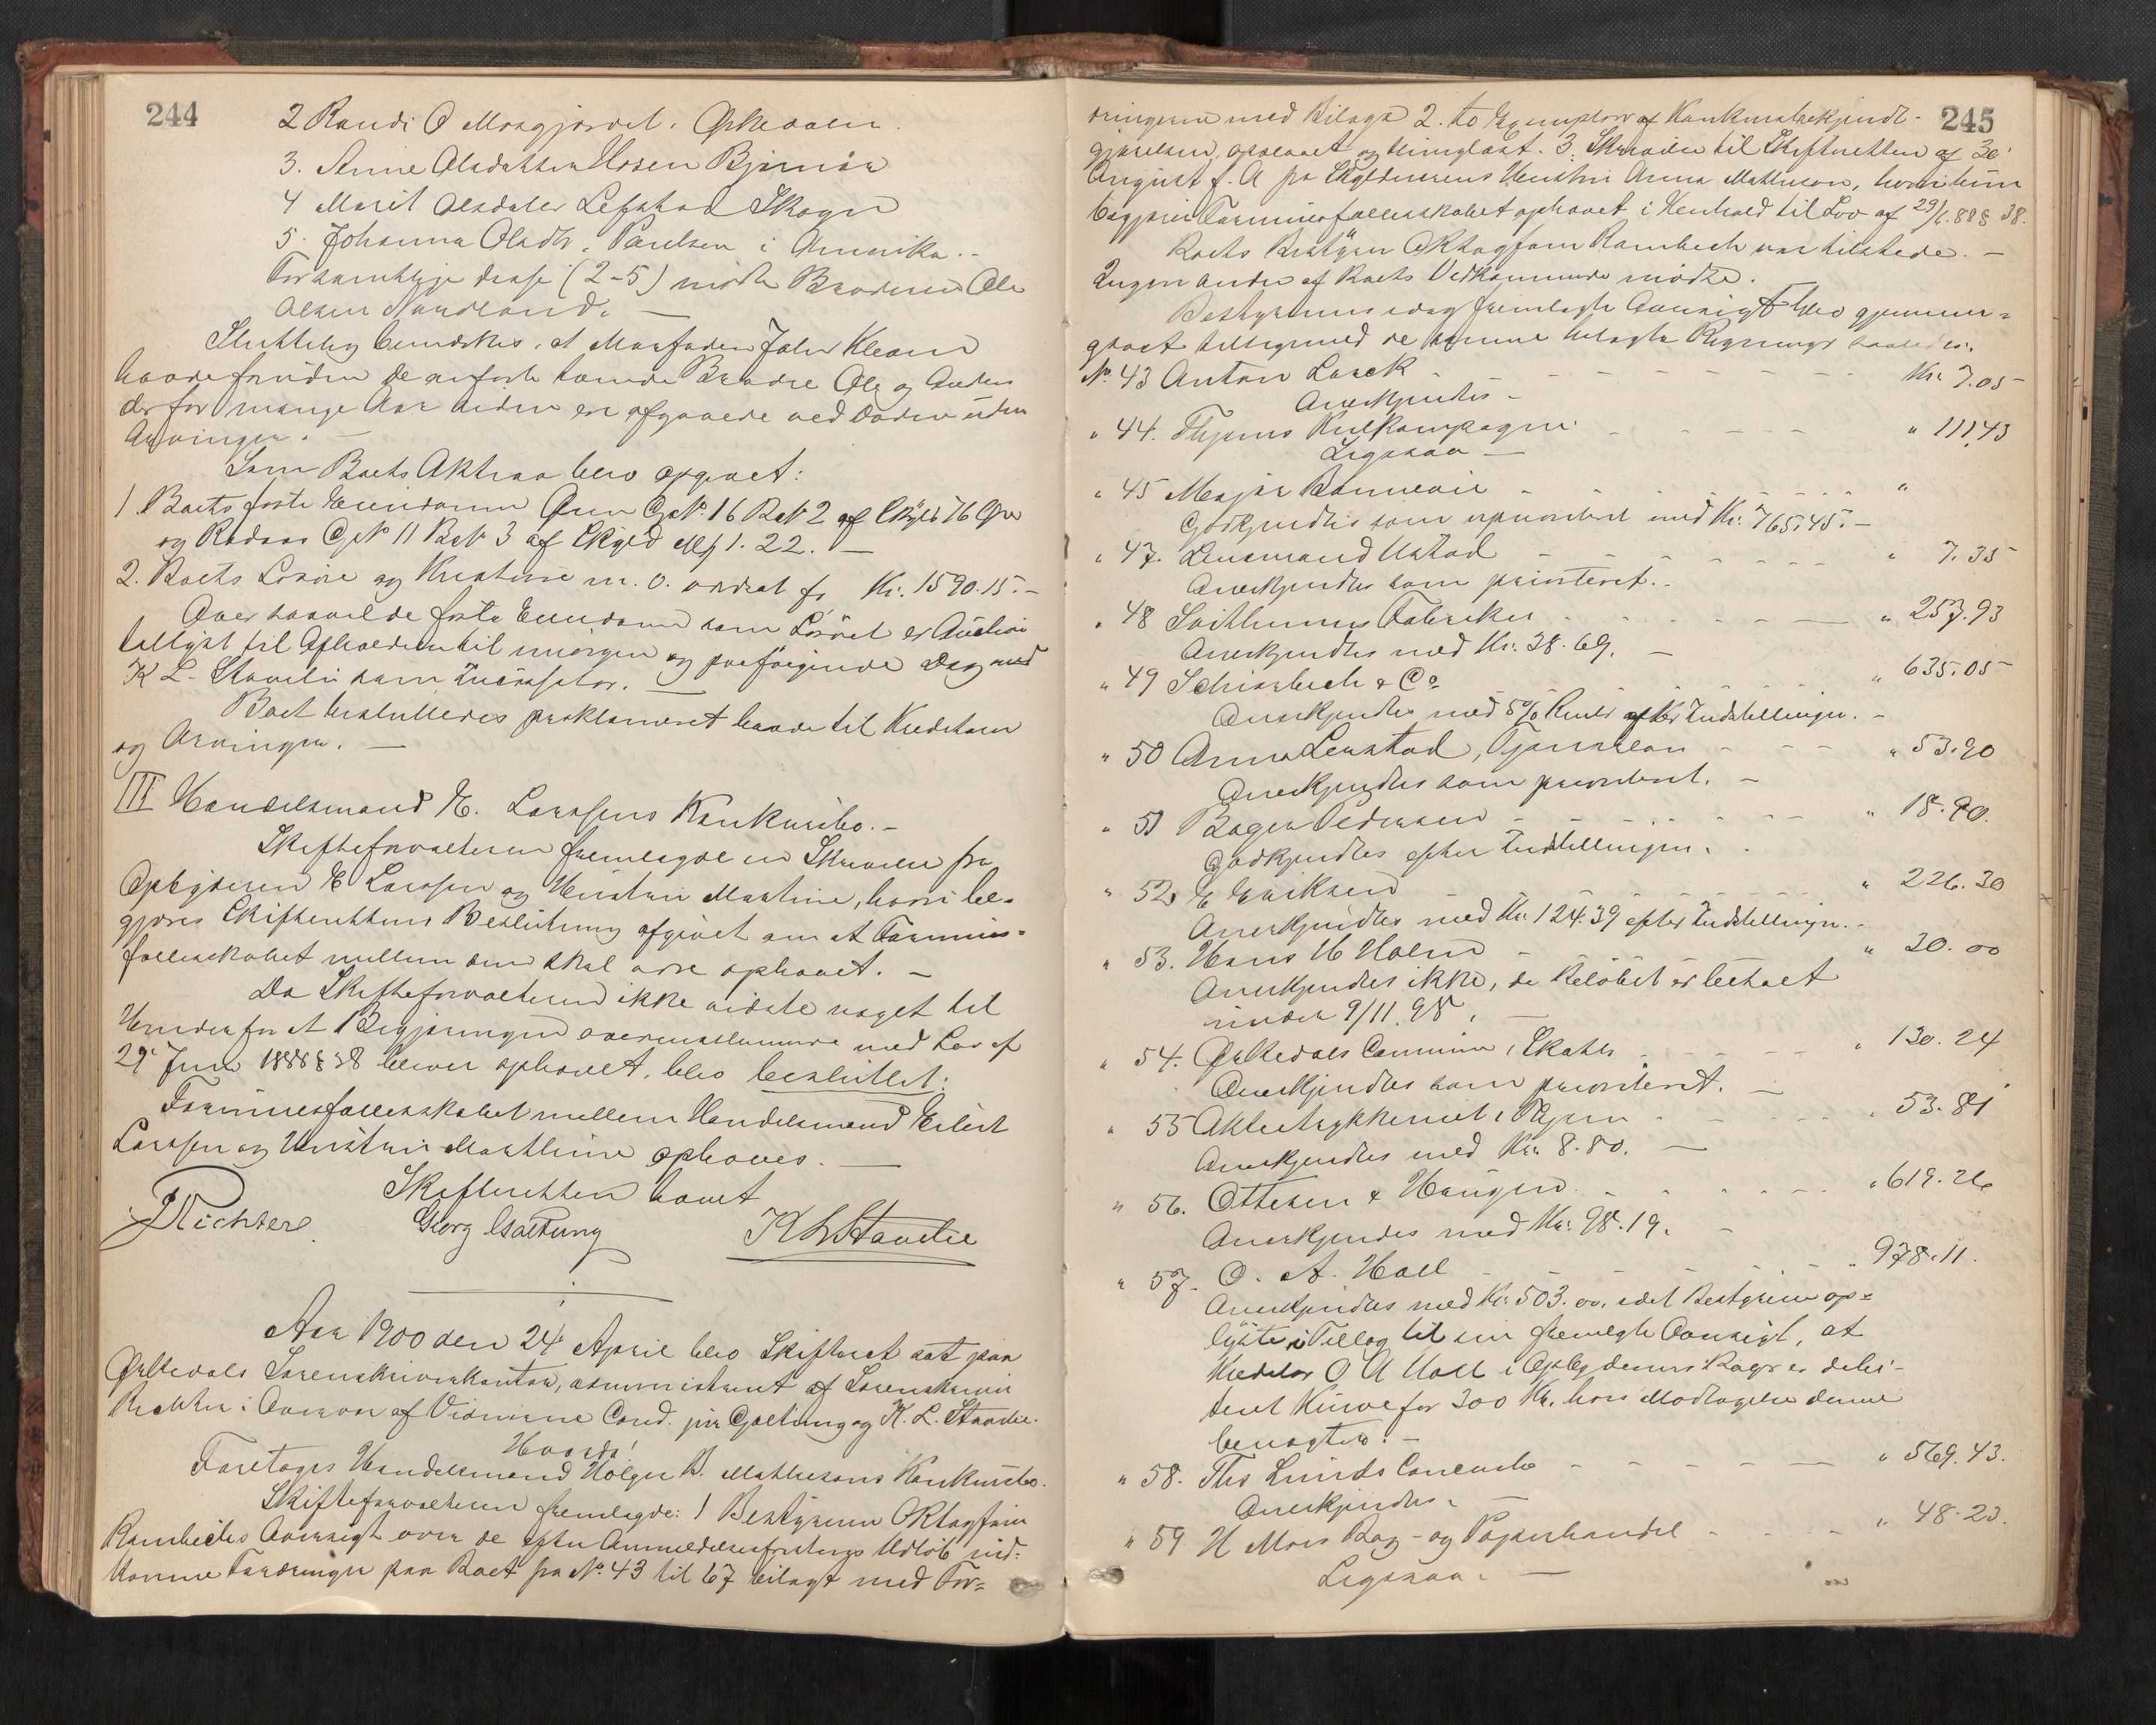 244
2 Randi O Moagjærdet, Ørkedalen.
3. Anne Olsdatter Hosen Bjørnør
4 Marit Olsdatter Skogn
5. Johanna Olsdtr. Paulsen i Amerika. -
For samtlige disse (2-5) mødte Broderen Ole
Olsen
Sluttelig bemærkes, at Morfaderen John
havde foruden de anførte tvende Brødre Ole og Anders
der for mange Aar siden ere afgaaede ved Døden uden
Arvinger. -
Som Boets Aktiva blev opgivet:
1. Boets faste Eiendomme Øren G.No. 16 B.No 2 af Skyld 76 Øre
og G.No 11 B.No 3 af Skyld Mk 1.22. -
2. Boets Løsøre og Kreature m. v. vurderet for Kr. 1590.15. -
Over saavel de faste Eiendomme som Løsøret er Auction
tillyst til Afholdelse til imorgen og paafølgende Dag med
K L. Stavelie som Inkassator. -
Boet besluttedes proklameret baade til Kreditorer
og Arvinger. -
III Handelsmand E. Larsens Konkursbo. -
Skifteforvalteren fremlagde en Skrivelse fra
Opbyderen E Larsen og Hustru Martine, hvori be-
gjæres Skifterettens Beslutning afgivet om at Formues-
fællesskabet mellem dem skal være ophævet. -
Da Skifteforvalteren ikke vidste noget til
Hinder for at Begjæringen overensstemmende med Lov af
29' Juni 1888 § 38 bliver ophævet, blev besluttet:
Formuesfællesskabet mellem Handelsmand Eilert
Larsen og Hustru Marthine ophæves. -
Skifteretten hævet
Richter. Georg Gjaltung K L Stavelie
Aar 1900 den 24' April blev Skifteret sat paa
Ørkedals Sorenskriverkontor, administreret af Sorenskriver
Richter i Overvær af Vidnerne Cand. jur Galtung og K. L. Stavelie.
Hvorda!
Foretages Handelsmand Holger B. Mathesons Konkursbo.
Skifteforvalteren fremlagde: 1 Bestyreren O.R.sagfører
Rambechs Oversigt over de efter Anmeldelsesfristens Udløb ind-
komne Fordringer paa Boet fra No. 43 til 67 bilagt med For-
245
dringerne med Bilage 2. to Exemplarer af Konkursbekjendt-
gjørelsen, opslaaet og thinglæst. 3. Skrivelse til Skifteretten af 30'
August f. A fra Skyldnerens Hustru Anna Matheson, hvori hun
begjærer Formuesfællesskabet ophævet i Henhold til Lov af 29/6.88 § 38.
Boets Bestyrer O.R.sagfører Rambech var tilstede. -
Ingen anden af Boets Vedkommende mødte.
Bestyrerens idag fremlagte Oversigt blev gjennem-
gaaet tilligemed de samme bilagte Regninger saaledes:
No. 43 Anton Larck - - - - Kr. 7.05
Anerkjendtes -
" 44. Thjems Kulkompagni - - - " 111.43
Ligesaa -
" 45 Major - - - - "
Godkjendtes som uprioriteret med Kr. 765.45. -
" 47. Lensmand Ustad - - - - " 7.35
Anerkjendtes som prioriteret. -
" 48 Svithunns Fabriker - - - - " 257.93
Anerkjendtes med Kr. 38.69. -
" 49 Schiesbech & Co - - - " 635.05
Anerkjendtes med 5% Rente efter Indstillingen. -
" 50 Anna Lenstad, Tjenerløn - - - " 53.90
Anerkjendtes som prioriteret. -
" 51 Bager Pedersen - - - - " 18.90.
Godkjendtes efter Indstillingen.
" 52. E Eriksen - - - " 226.30
Anerkjendtes med Kr. 124.39 efter Indstillingen. -
" 53. Hans H Holm - - - " 20.00
Anerkjendtes ikke, da Beløbet er betalt
under 9/11.98. -
" 54. Ørkedals Commune, Skatter - - - " 130.24
Anerkjendtes som prioriteret. -
" 55 Aktietrykkeriet i Thjem - - - " 53.81
Anerkjendtes med Kr. 8.80. -
" 56. Ottesen & Haugen - - - " 619.26
Anerkjendes med Kr. 98.19. -
" 57. O. A. Hall - - - " 978.11.
Anerkjendtes med Kr. 503.00, idet Bestyreren op-
lyste i Tillæg til sin fremlagte Oversigt, at
Kreditor O A Hall i Opbyderens Bøger er debi-
teret Kurve for 300 Kr. hvis Modtagelse denne
benægter. -
" 58. Ths Lunds Concursbo - - - - " 569.43.
Anerkjendtes. -
" 59. H Moes Bog- og Papirhandel - - - " 48.23.
Ligesaa. -